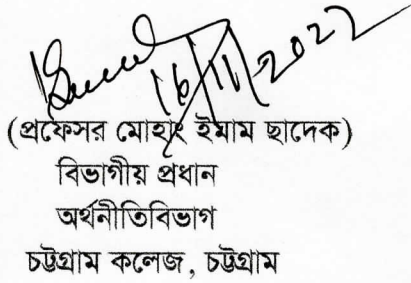 16/11/2022
(প্রফেসর মোহাঃ ইমাম ছাদেক)
বিভাগীয় প্রধান
অর্থনীতিবিভাগ
চট্টগ্রাম কলেজ, চট্টগ্রাম